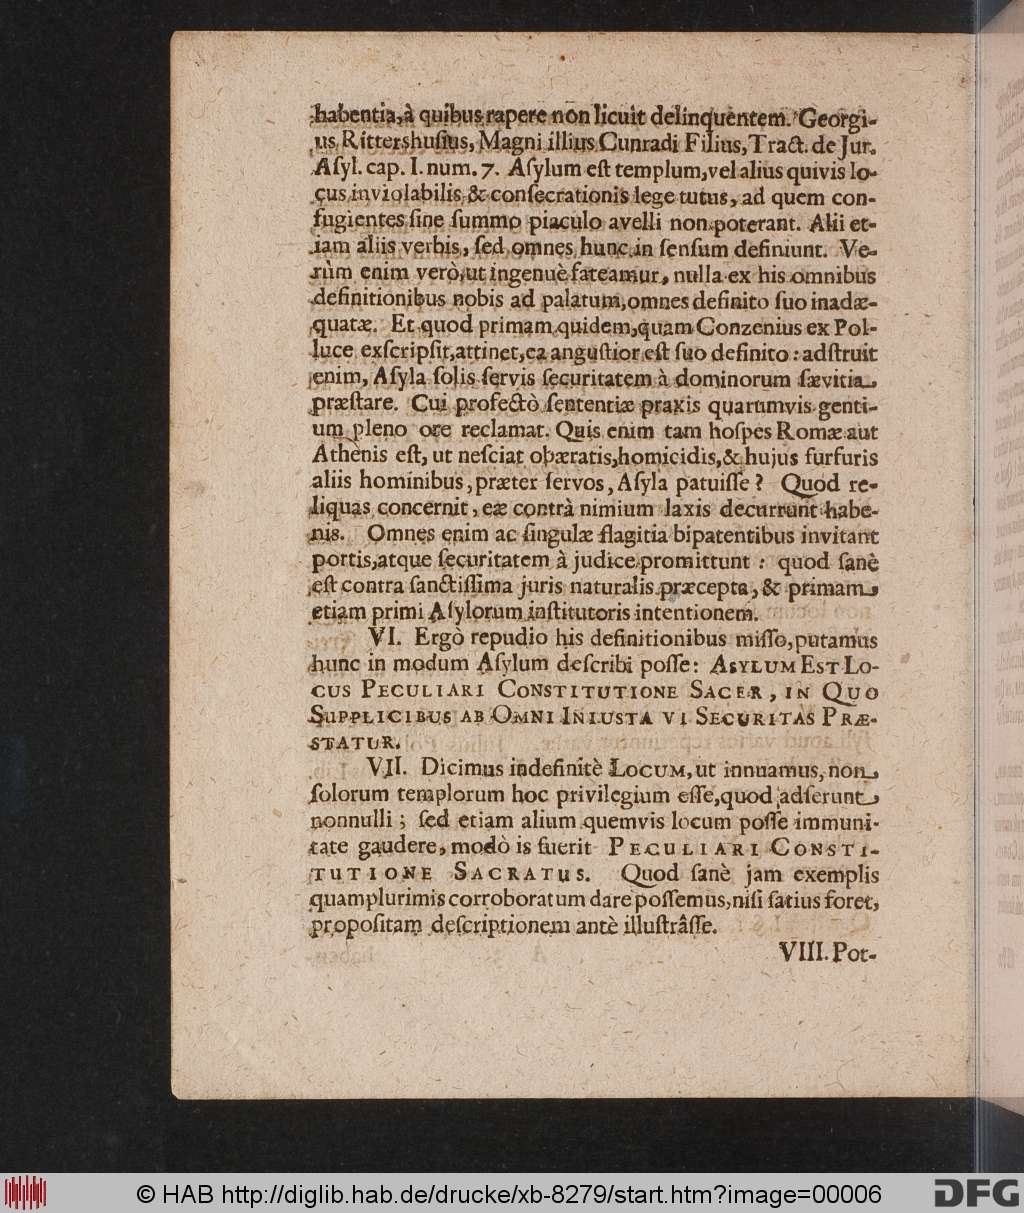 habentia, à quibus rapere non licuit delinquentem. Georgi-
us Rittershuſius, Magni illius Cunradi Filius, Tract. de Jur.
Aſyl. cap. I. num. 7. Aſylum eſt templum, vel alius quivis lo-
cus inviolabilis & conſecrationis lege tutus, ad quem con-
fugientes ſine ſummo piaculo avelli non poterant. Alii et-
iam aliis verbis, ſed omnes hunc in ſenſum definiunt. Ve-
rùm enim verò, ut ingenuè fateamur, nulla ex his omnibus
definitionibus nobis ad palatum, omnes definito ſuo inadæ-
quatæ. Et quod primam quidem, quam Conzenius ex Pol-
luce exſcripſit, attinet, ea anguſtior eſt ſuo definito: adſtruit
enim, Aſyla ſolis ſervis ſecuritatem à dominorum ſævitia
præſtare. Cui profectò ſententiæ praxis quarumvis genti-
um pleno ore reclamat. Quis enim tam hoſpes Romæ aut
Athenis eſt, ut neſciat obæratis, homicidis, & hujus furfuris
aliis hominibus, præter ſervos, Aſyla patuiſſe? Quod re-
liquas concernit, eæ contrà nimium laxis decurrunt habe-
nis. Omnes enim ac ſingulæ flagitia bipatentibus invitant
portis, atque ſecuritatem à judice promittunt: quod ſanè
eſt contra ſanctiſſima juris naturalis præcepta, & primam
etiam primi Aſylorum inſtitutoris intentionem.
VI. Ergò repudio his definitionibus miſſo, putamus
hunc in modum Aſylum deſcribi poſſe: ASYLUM EST LO-
CUS PECULIARI CONSTITUTIONE SACER, IN QUO
SUPPLICIBUS AB OMNI INIUSTA VI SECURITAS PRÆ-
STATUR.
VII. Dicimus indefinitè LOCUM, ut innuamus, non
ſolorum templorum hoc privilegium eſſe, quod adſerunt
nonnulli; ſed etiam alium quemvis locum poſſe immuni-
tate gaudere, modò is fuerit PECULIARI CONSTI-
TUTIONE SACRATUS. Quod ſanè jam exemplis
quamplurimis corroboratum dare poſſemus, niſi ſatius foret,
propoſitam deſcriptionem antè illuſtrâſſe.
VIII. Pot-
© HAB http://diglib.hab.de/drucke/xb-8279/start.htm?image=00006
DFG